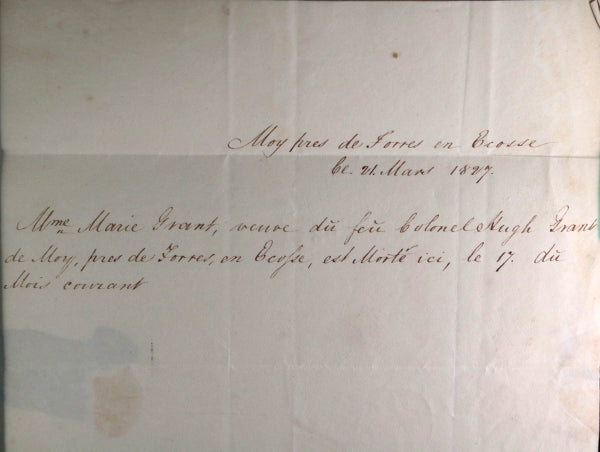 Moy pres de Forres en Ecosse
Ce. 21. Mars 1827.
Mme Marie Grant, veuve dŭ feŭ Colonel Hugh Grant
de Moy, pres de Forres, en Ecoſse, est Morté ici, le 17. dŭ
Mois courant